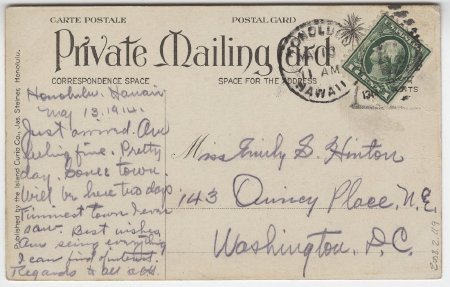 CARTE POSTALE
POSTAL CARD
Private Mailing Card
CORRESPONDENCE SPACE
SPACE FOR THE ADDRESS
HONOLULU
AM
HAWAII
Honolulu, Hawaii
May 13, 1914.
Just arrived. Am
feeling fine. Pretty
day. town.
Will be here two days
town I ever
saw. Best wishes
Am seeing everything
I can find of interest.
Regards to all
Miss Emily S. Hinton
143 Quincy Place, N.E
Washington, D.C.
Published by the Island Curio Co., Jas. Steiner, Honolulu.